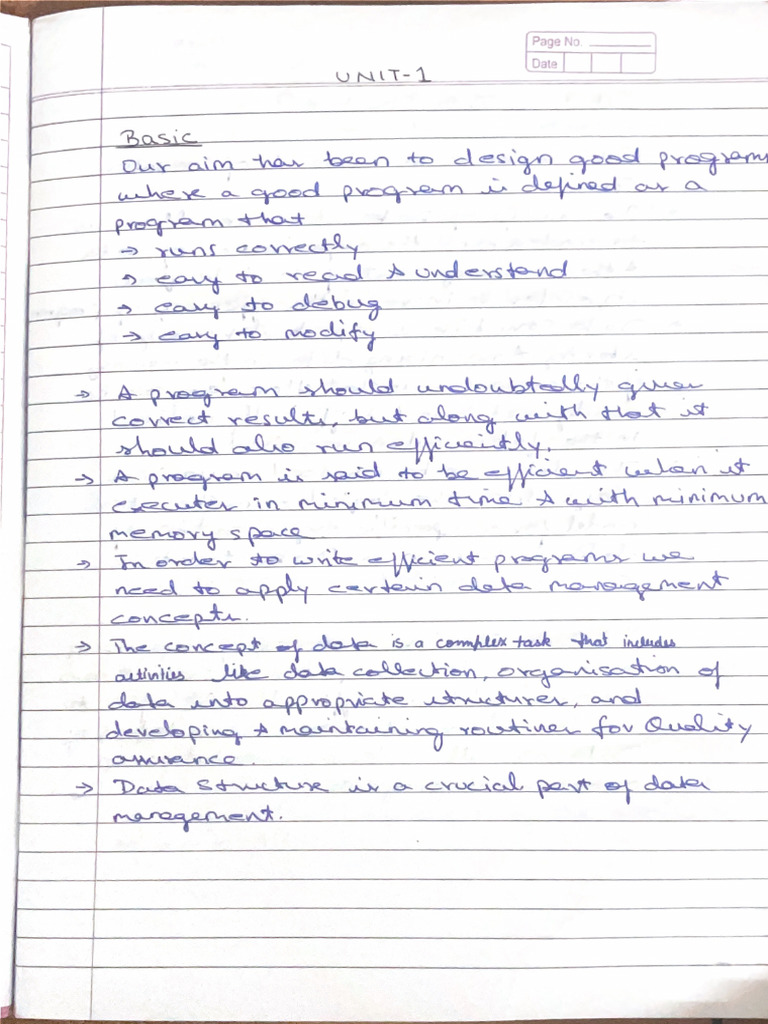 Page No.
Date
UNIT-1
Basic
Our aim has been to design good programs
where a good program is defined as a
program that
→ runs correctly
→ easy to read & understand
→ easy to debug
→ easy to modify
→ A program should undoubtedly gives
correct results, but along with that it
should also run efficiently.
→ A program is said to be efficient when it
executes in minimum time & with minimum
memory space
→ In order to write efficient programs we
need to apply certain data management
concepts.
→ The concept of data is a complex task that includes
activities like data collection, organisation of
data into appropriate structures, and
developing & maintaining routines for Quality
assurance.
→ Data Structure is a crucial part of data
management.